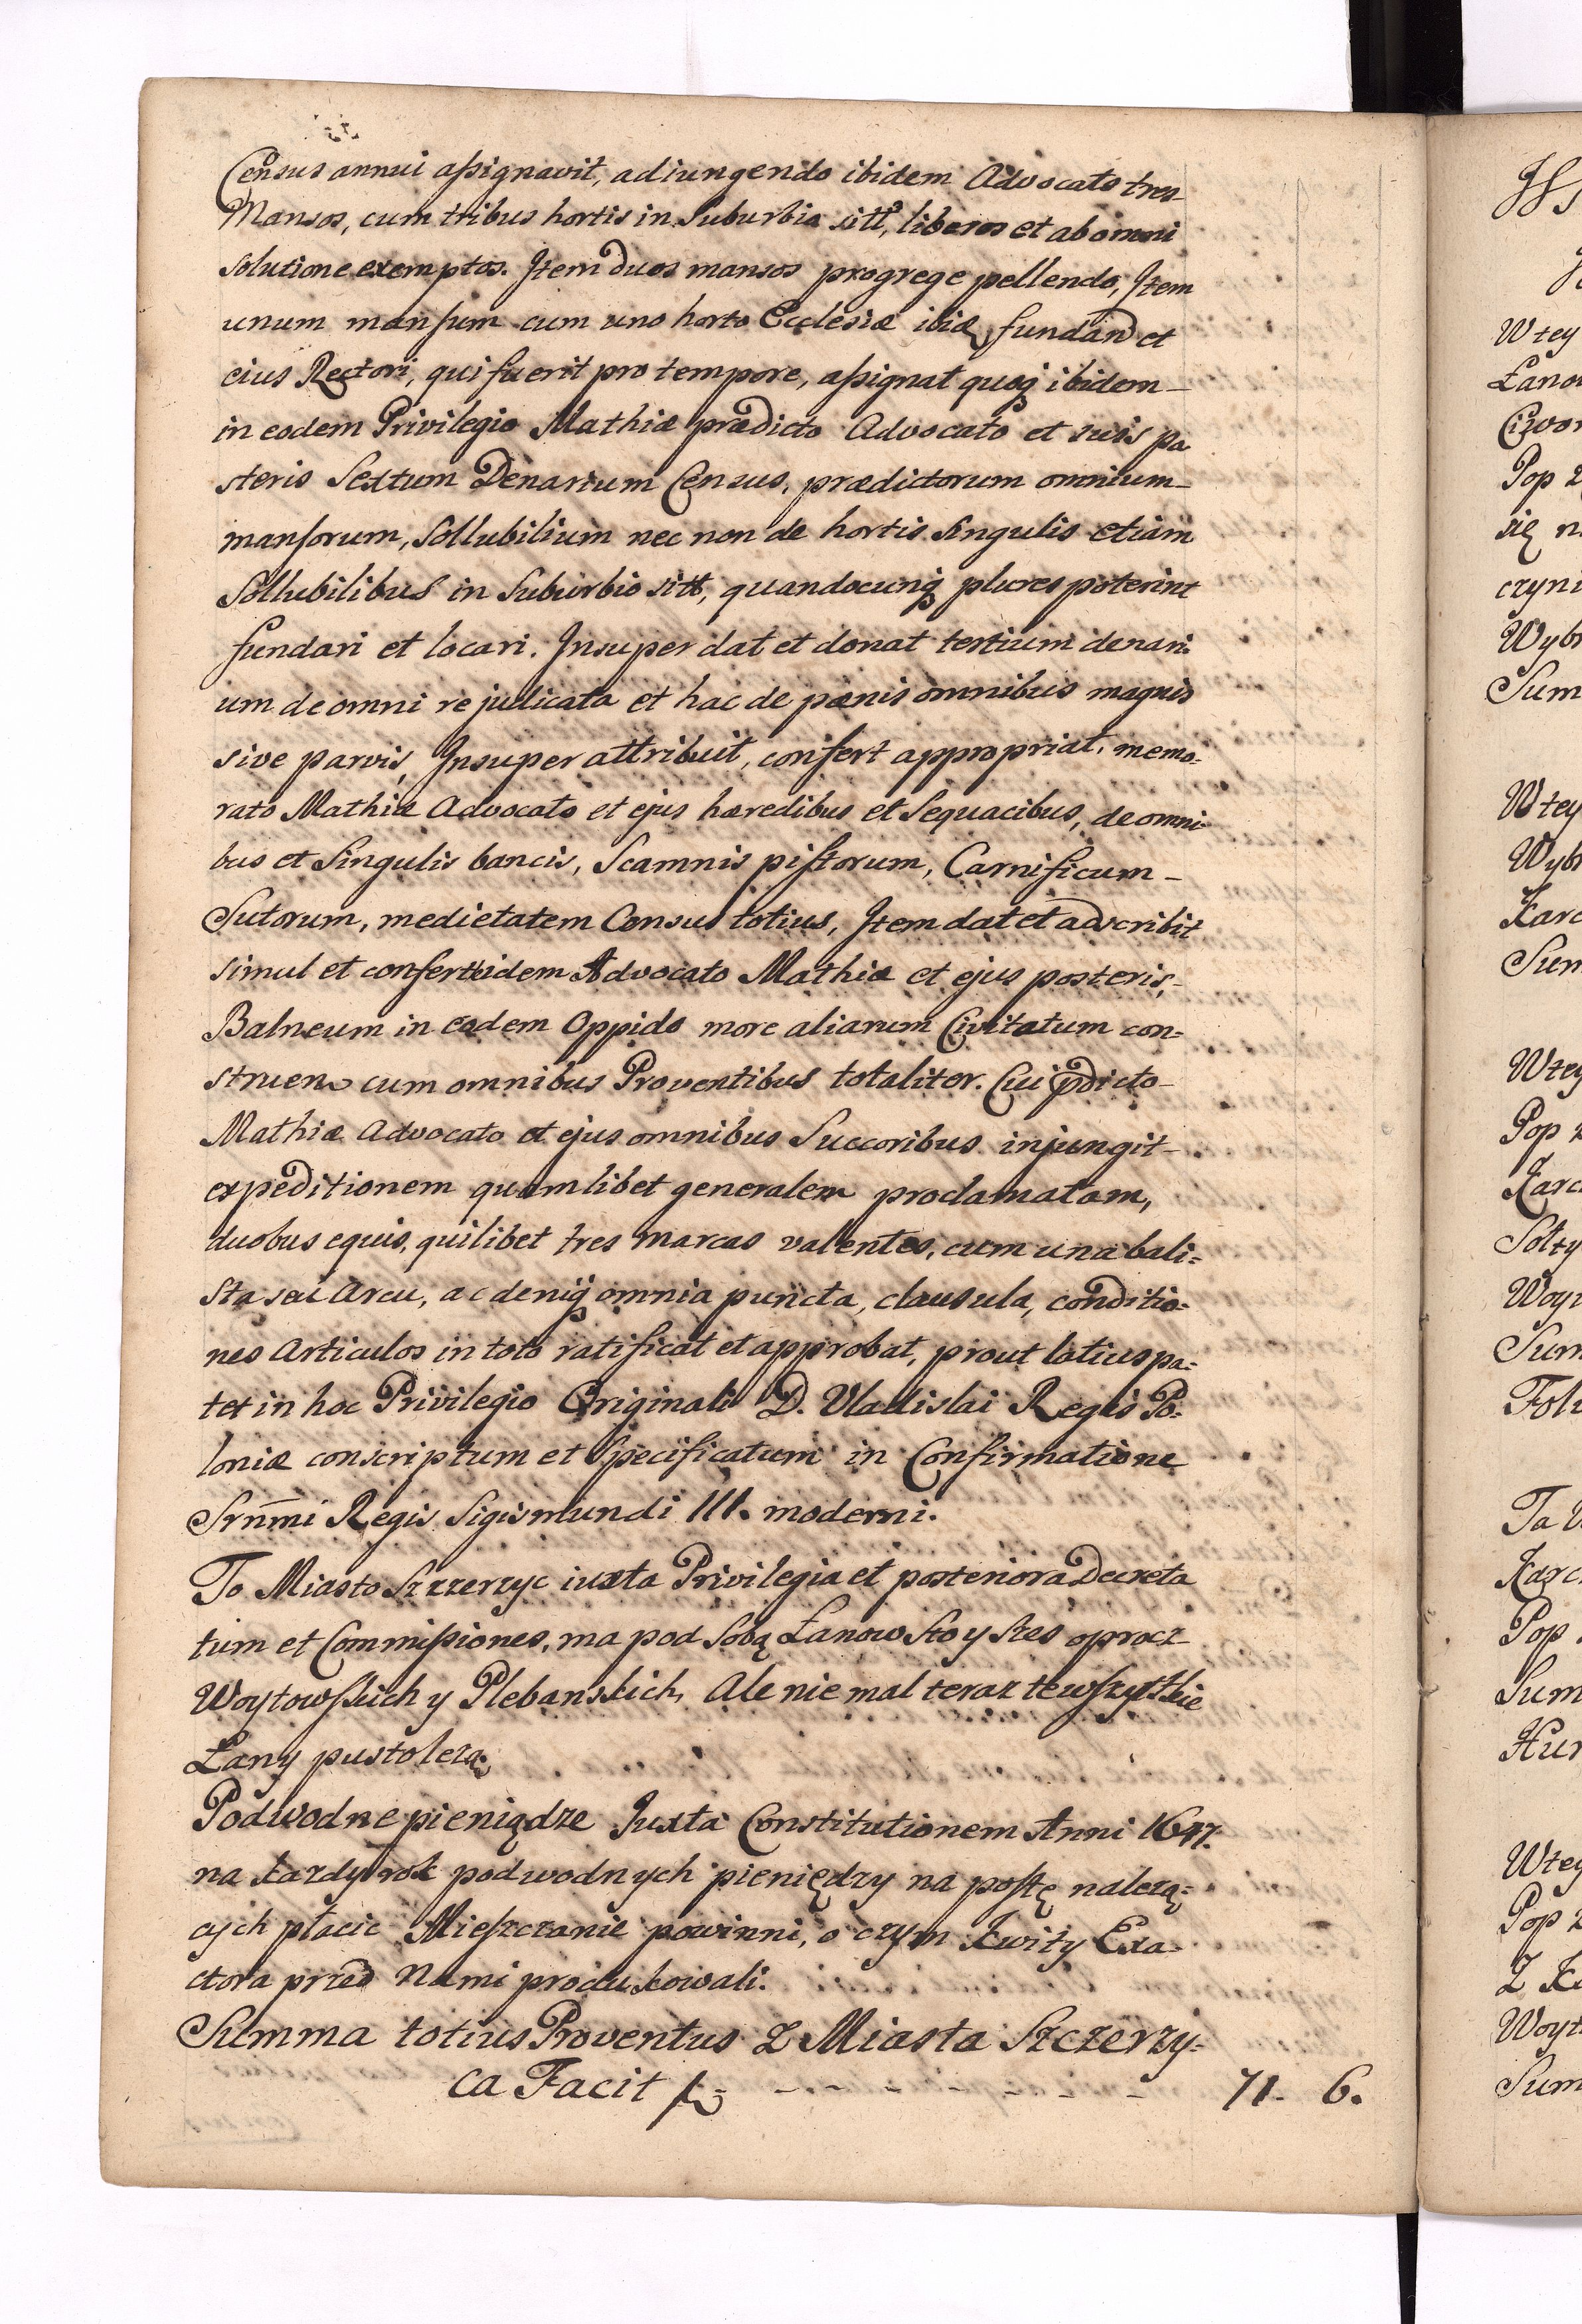 Census annui assignavit, adiungendo ibidem Advocato tres
Mansos, cum tribus hortis in Suburbia sitt, liberos et ab omni
solutione exemptos. Item duos mansos progrege pellendo, Item
unum mansum cum uno horto Ecclesiæ ibiq fundand et
eius Rectori, qui fuerit pro tempore, assignat quoq ibidem
in eodem Privilegio Mathiæ prædicto Advocato et suis po
steris Sextum Denarium Census, prædictorum omnium
mansorum, Sollubilium nec non de hortis Singulis etiam
Sollubilibus in Suburbio sitt, quandocunq plures poterint
fundari et locari. Insuper dat et donat tertium denari
um de omni re judicata et hac de pœnis omnibus magnis
sive parvis, Insuper attribuit, confert appropriat, memo-
rato Mathiæ Advocato et ejus hæredibus et Sequacibus, de omni-
bus et Singulis bancis, Scamnis pistorum, Carnificum
Sutorum, medietatem Census totius, Item dat et adscribit
simul et confert eidem Advocato Mathiæ et ejus posteris,
Balneum in eodem Oppido more aliarum Civitatum con=
struen cum omnibus Proventibus totaliter. Cui pdicto
Mathiæ Advocato et ejus omnibus Succoribus injungit
expeditionem quamlibet generalem proclamatam,
duobus equis, quilibet tres marcas valentes, cum una bali=
sta seu Arcu, ac deniq omnia puncta, clausula, conditio=
nes Articulos in toto ratificat et approbat, prout latius pa=
tet in hoc Privilegio Originali D. Vladislai Regis Po=
loniæ conscriptum et Specificatum in Confirmatione
Srnmi Regis Sigismundi III. moderni.
To Miasto Szczerzyc iuxta Privilegia et posteriora Decreta
tum et Commissiones, ma pod Sobą Łanow Sto y Szes oprocz
Woytowskich y Plebanskich, Ale niemal teraz te wszystkie
Łany pusto lezą.
Podwodne pieniądze Juxta Constitutionem Anni 1647.
na kazdy rok podwodnych pieniędzy na posztę nalezą=
cych płacic Mieszczanie powinni, o czym Kwity Exa
ctora przed Nami produkowali.
Summa totius Proventus Z Miasta Szczerzy=
ca Facit f - - - - - - - - 71. 6.